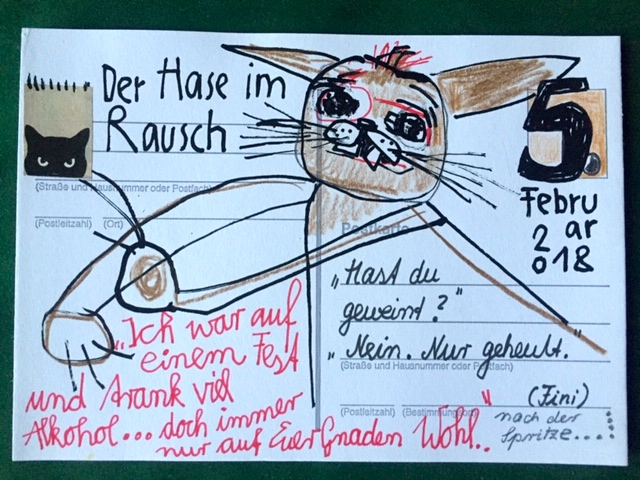 Der Hase im
Rausch
5.
Februar
2018
(Straße und Hausnummer oder Postfach)
(Postleitzahl) (Ort)
Postkarte
„Hast du
geweint?"
„Nein. Nur geheult."
(Straße und Hausnummer oder Postfach)
(Fini)
(Postleitzahl) (Bestimmungsort)
nach der
Spritze.....
„Ich war auf
einem Fest
und trank viel
Alkohol... doch immer
nur auf Euer Gnaden Wohl.."